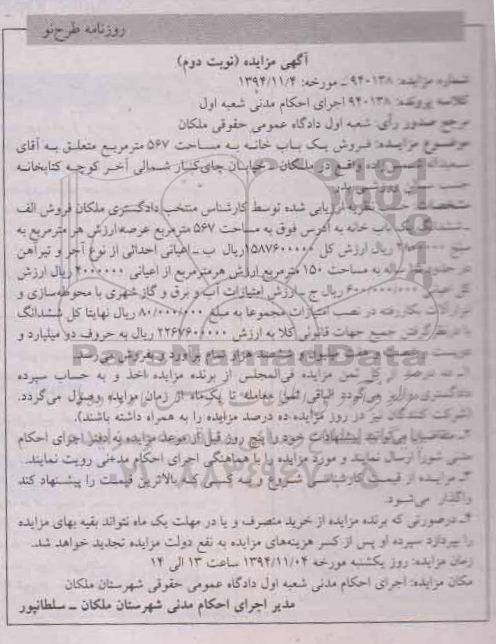 روزنامه طرح‌نو
آگهی مزایده (نوبت دوم)
شماره مزایده: ۹۴۰۱۳۸ ـ مورخه: ۱۳۹۴/۱۱/۴
کلاسه پرونده: ۹۴۰۱۳۸ اجرای احکام مدنی شعبه اول
مرجع صدور رأی: شعبه اول دادگاه عمومی حقوقی ملکان
موضوع مزایده: فروش یک باب خانه به مساحت ۵۶۷ مترمربع متعلق به آقای
واقع در ملکان ـ خیابان چای‌کنار شمالی آخر کوچه کتابخانه
جنب سالن ورزشی
نظریه ارزیابی شده توسط کارشناس منتخب دادگستری ملکان فروش الف
ـ ششدانگ یک باب خانه به آدرس فوق به مساحت ۵۶۷ مترمربع عرصه ارزش هر مترمربع به
مبلغ ۲/۸۰۰/۰۰۰ ریال ارزش کل ۱۵۸۷۶۰۰۰۰۰ ریال ب ـ اعیانی احداثی از نوع آجر و تیرآهن
در حدود ساله به مساحت ۱۵۰ مترمربع ارزش هرمترمربع از اعیانی ۴۰۰۰۰۰۰ ریال ارزش
کل اعیانی ۶۰۰/۰۰۰/۰۰۰ ریال ج ـ ارزش امتیازات آب و برق و گاز شهری با محوطه‌سازی و
بکاررفته در نصب امتیازات مجموعا به مبلغ ۸۰/۰۰۰/۰۰۰ ریال نهایتا کل ششدانگ
با درنظر گرفتن جمیع جهات قانونی کلا به ارزش ۲۲۶۷۶۰۰۰۰۰ ریال به حروف دو میلیارد و
دویست و شصت و هفت میلیون و ششصد هزار تمام برآورد و بفروش می‌رسد.
۱ـ ده درصد از کل ثمن مزایده فی‌المجلس از برنده مزایده اخذ و به حساب سپرده
دادگستری واریز می‌گردد الباقی ثمن معامله تا یک‌ماه از زمان مزایده وصول می‌گردد.
(شرکت کنندگان نیز در روز مزایده ده درصد مزایده را به همراه داشته باشند).
۲ـ متقاضیان می‌توانند پیشنهادات خود را پنج روز قبل از موعد مزایده به دفتر اجرای احکام
مدنی شورا ارسال نمایند و مورد مزایده را با هماهنگی اجرای احکام مدنی رویت نمایند.
۳ـ مزایده از قیمت کارشناسی شروع و به کسی که بالاترین قیمت را پیشنهاد کند
واگذار می‌شود.
۴ـ درصورتی که برنده مزایده از خرید منصرف و یا در مهلت یک ماه نتواند بقیه بهای مزایده
را بپردازد سپرده او پس از کسر هزینه‌های مزایده به نفع دولت مزایده تجدید خواهد شد.
زمان مزایده: روز یکشنبه مورخه ۱۳۹۴/۱۱/۰۴ ساعت ۱۳ الی ۱۴
مکان مزایده: اجرای احکام مدنی شعبه اول دادگاه عمومی حقوقی شهرستان ملکان
مدیر اجرای احکام مدنی شهرستان ملکان ـ سلطانپور